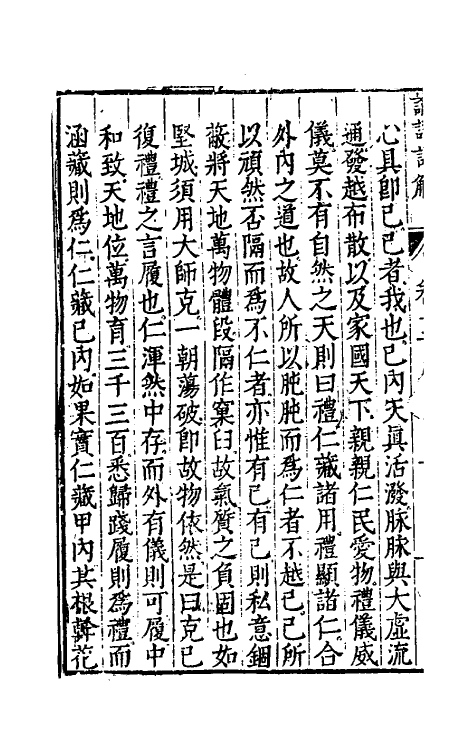 心具卽己己者我也己內天眞活潑脉脉與大虛流
通發越布散以及家國天下親親仁民愛物禮儀威
儀莫不有自然之天則曰禮仁藏諸用禮顯諸仁合
外內之道也故人所以肫肫而爲仁者不越己己所
以頑然否隔而爲不仁者亦惟有己有己則私意錮
蔽將天地萬物體段隔作窠臼故氣質之負固也如
堅城須用大師克一朝蕩破卽故物依然是曰克己
復禮禮之言履也仁渾然中存而外有儀則可履中
和致天地位萬物育三千三百悉歸踐履則爲禮而
涵藏則爲仁仁藏己內如果實仁藏甲內其根幹花